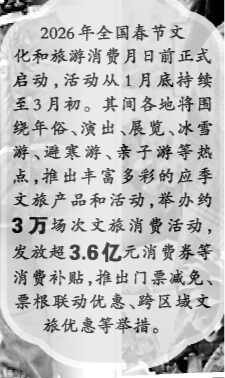 2026年全国春节文
化和旅游消费月日前正式
启动，活动从1月底持续
至3月初。其间各地将围
绕年俗、演出、展览、冰雪
游、避寒游、亲子游等热
点，推出丰富多彩的应季
文旅产品和活动，举办约
3万场次文旅消费活动，
发放超3.6亿元消费券等
消费补贴，推出门票减免、
票根联动优惠、跨区域文
旅优惠等举措。